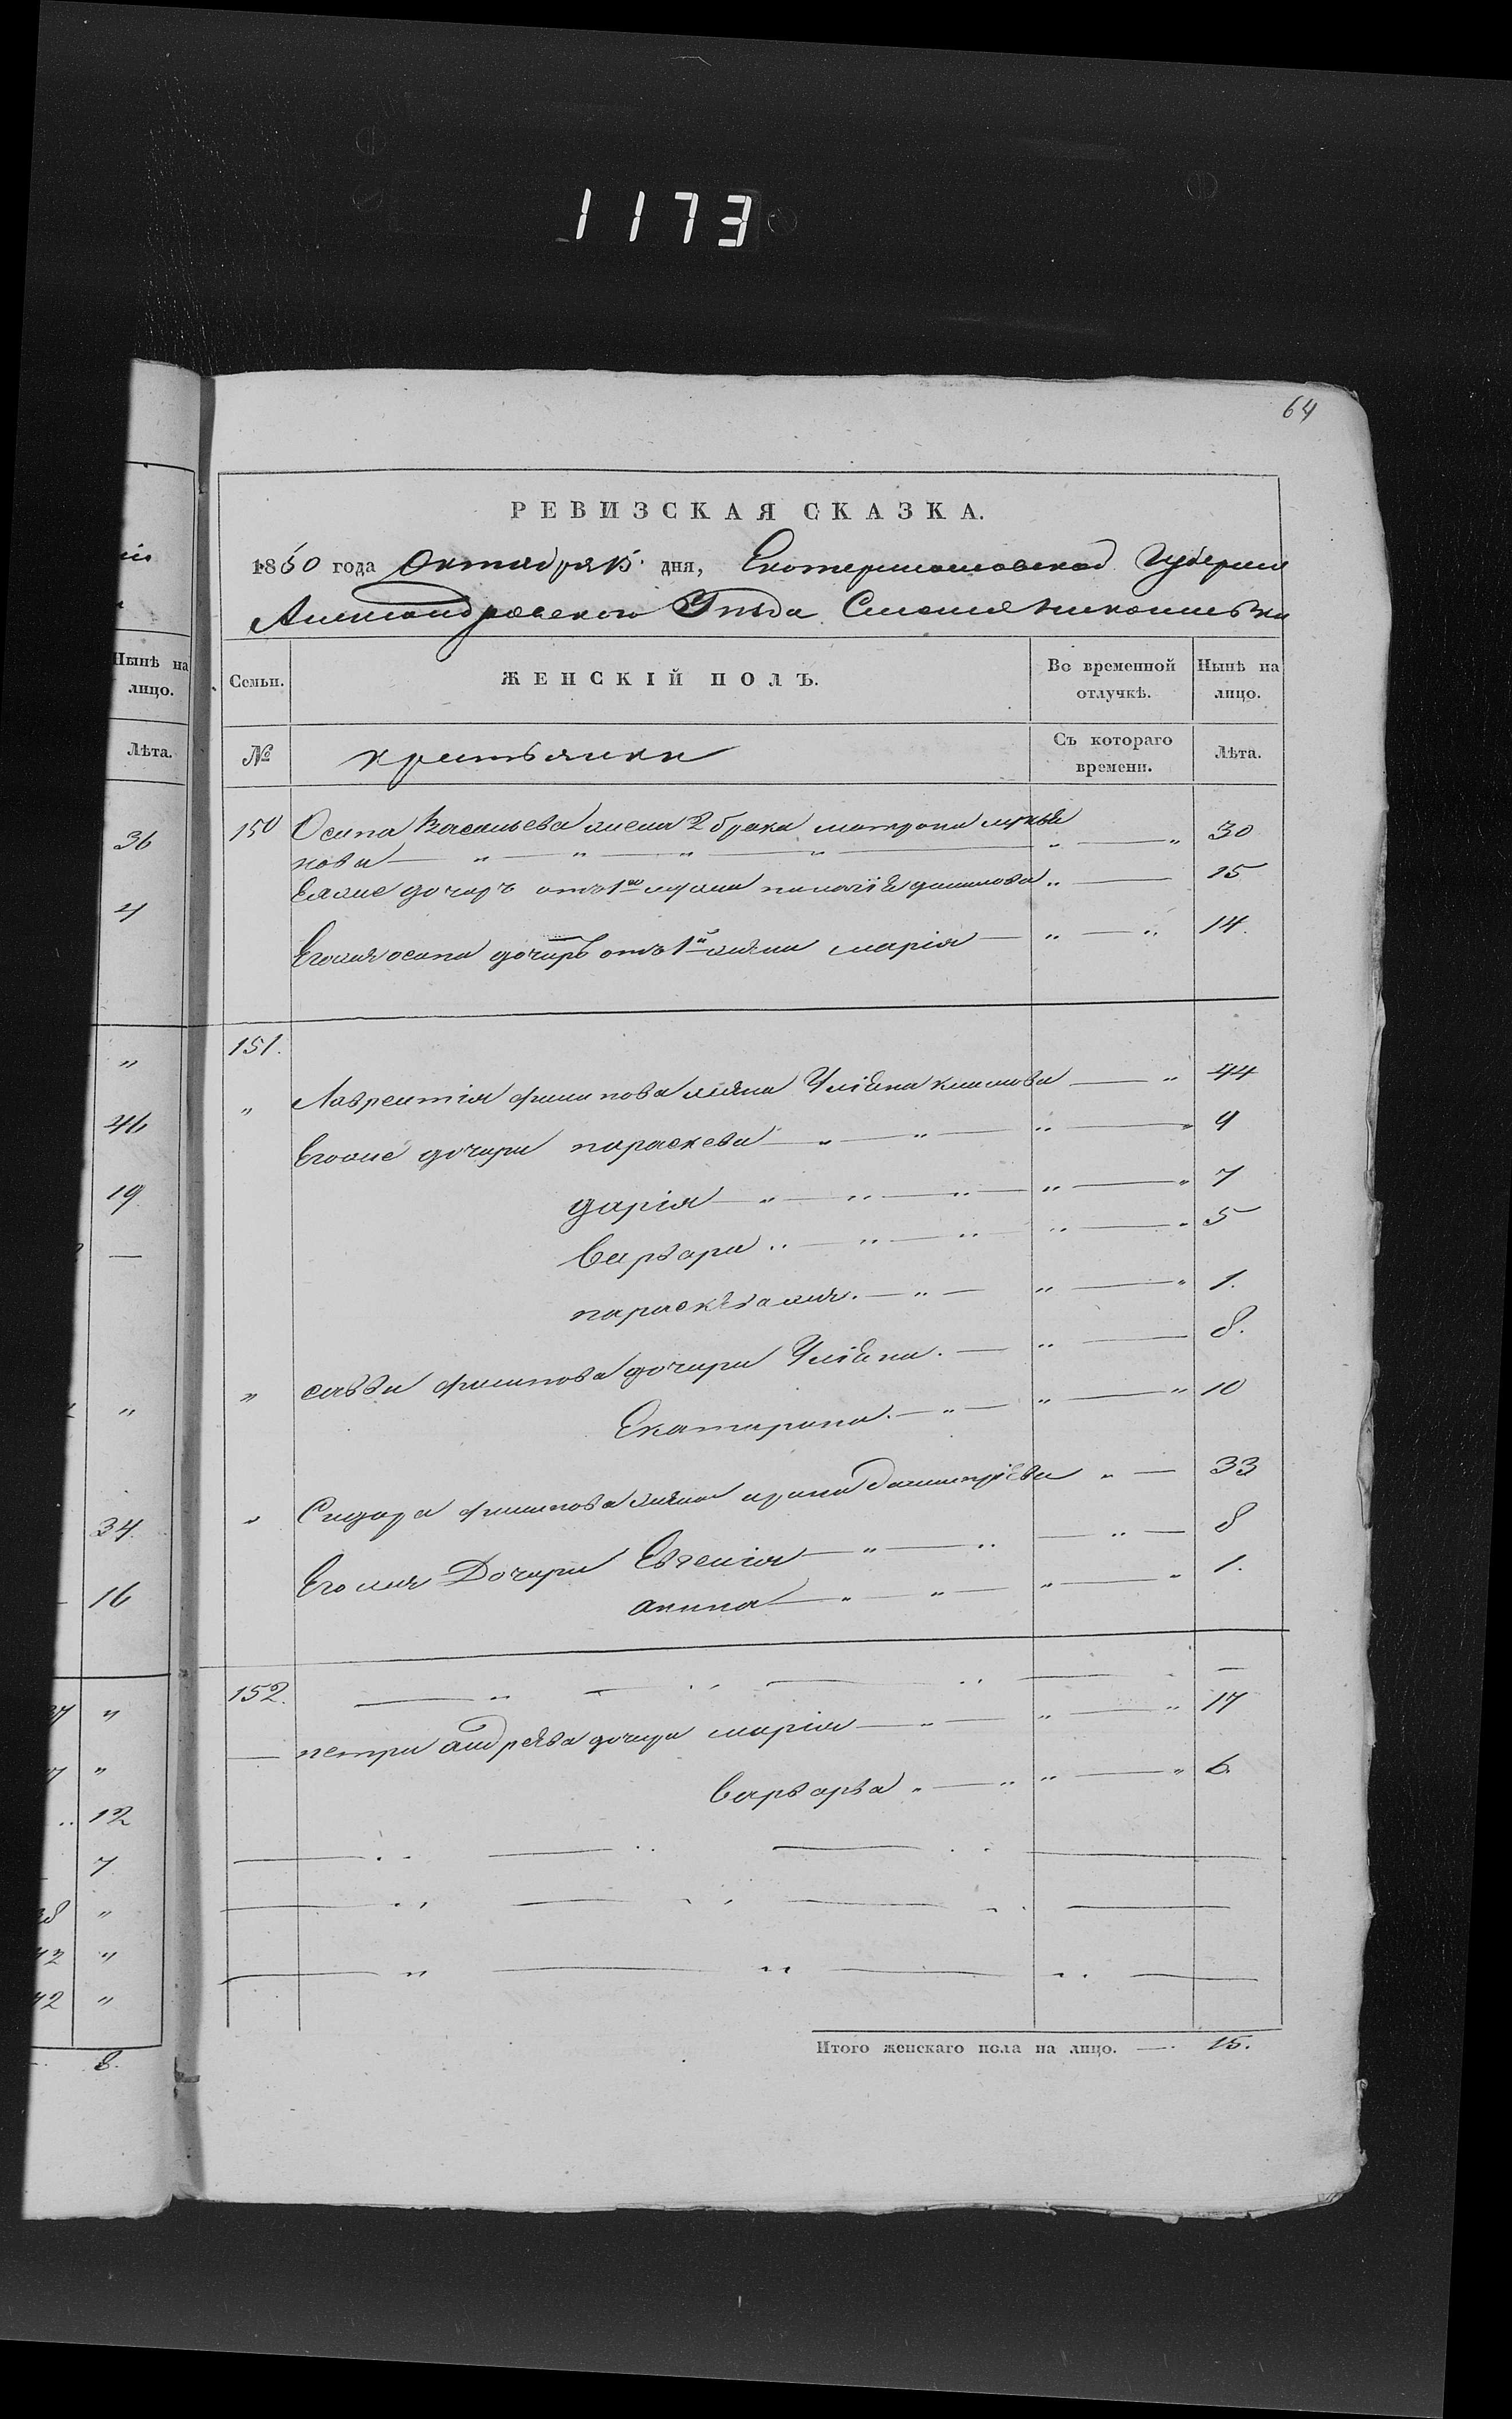 1173
64
РЕВИЗСКАЯ СКАЗКА.
1850 года Октября 15 дня, Екатеринославской Губернии
Александровского Уезда Николаевки
Семьи. ЖЕНСКІЙ ПОЛЪ. Во временной отлучкѣ. Нынѣ на лицо.
№ крестьянки Съ котораго времени. Лѣта.
150 Осипа Васильева жена 2 брака матрона лукья
нова 30
Еяже дочеръ отъ 1го мужа данилова 15
Егожъ осипа дочерь отъ 1й жены марія 14.
151.
" Лаврентія филипова жена Уліана климова 44
Егоже дочери параскева 9
дарія 7
варвара 5
параскѣва 1.
" саввы филипова дочери Уліана. 8.
Екатерина. 10
" Сидора филипова жена ирина дмитріева 33
Егожъ Дочери Евгенія 8
анна 1.
152.
петра андреева дочери марія 17
варвара 6.
Итого женскаго пола на лицо. 15.
Нынѣ на
лицо.
Лѣта.
36
4
"
46
19
—
"
34.
16
"
"
12
7
"
"
42 "
8.